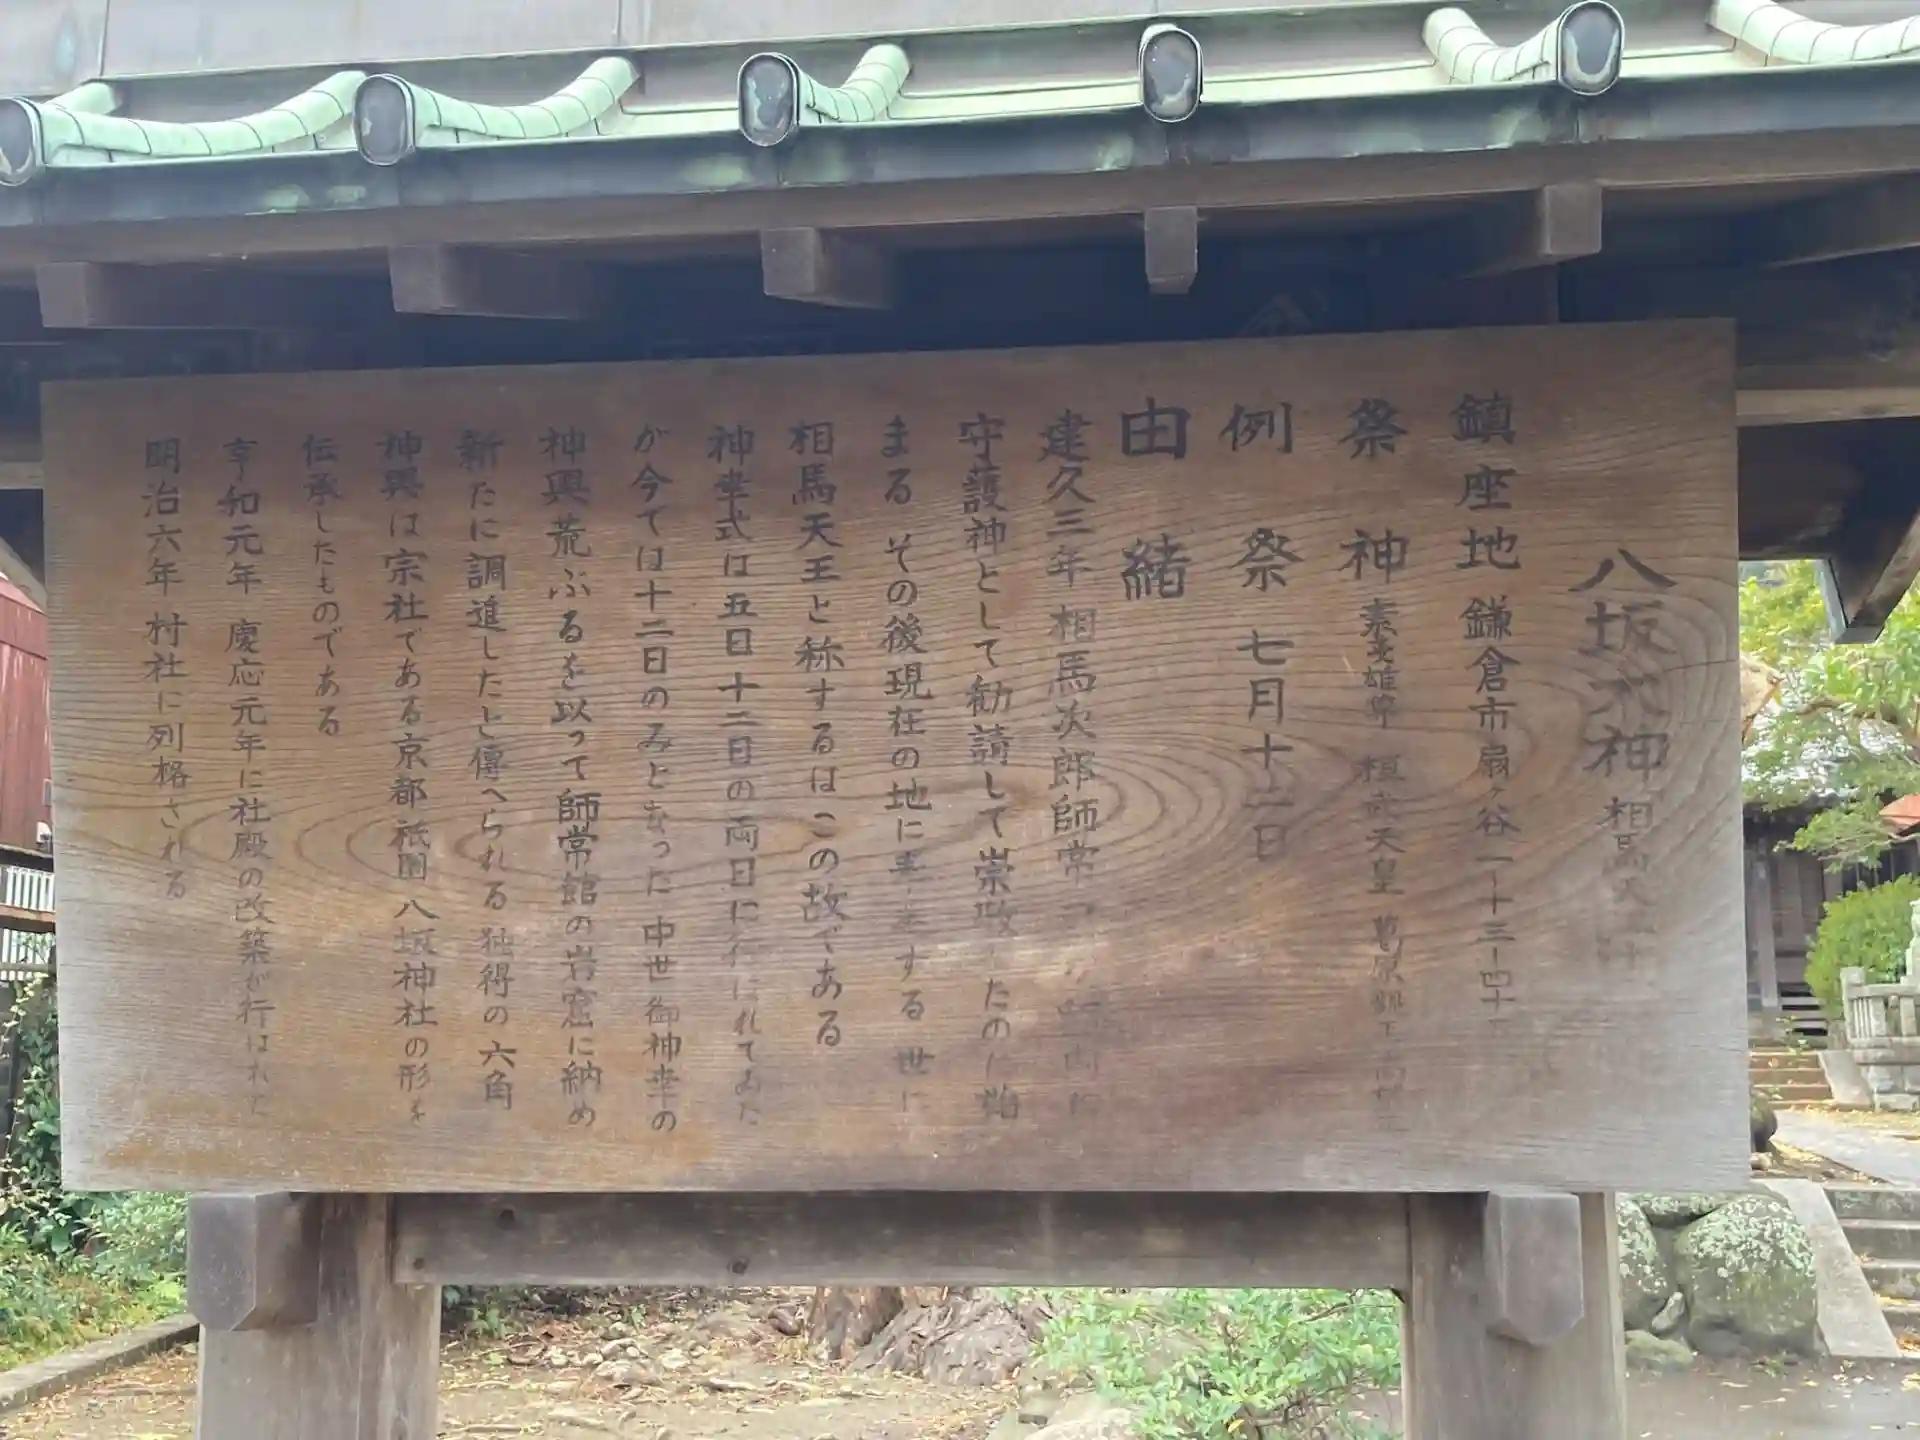 八坂大神 相馬天
鎮座地 鎌倉市扇ヶ谷一ー十三ー四十
祭神 素戔雄尊 桓武天皇 葛原親王 高
例祭 七月十二日
由緒
建久三年 相馬次郎師常
守護神として勧請して崇敬したのに始
まる その後現在の地に奉する 世に
相馬天王と称するはこの故である
神幸式は五日十二日の両日に行はれてゐた
が今では十二日のみとなった 中世御神幸の
神輿荒ぶるを以って師常館の岩窟に納め
新たに調進したと傳へられる 独得の六角
神輿は宗社である京都祇園八坂神社の形を
伝承したものである
享和元年 慶応元年に社殿の改築が行はれた
明治六年 村社に列格される